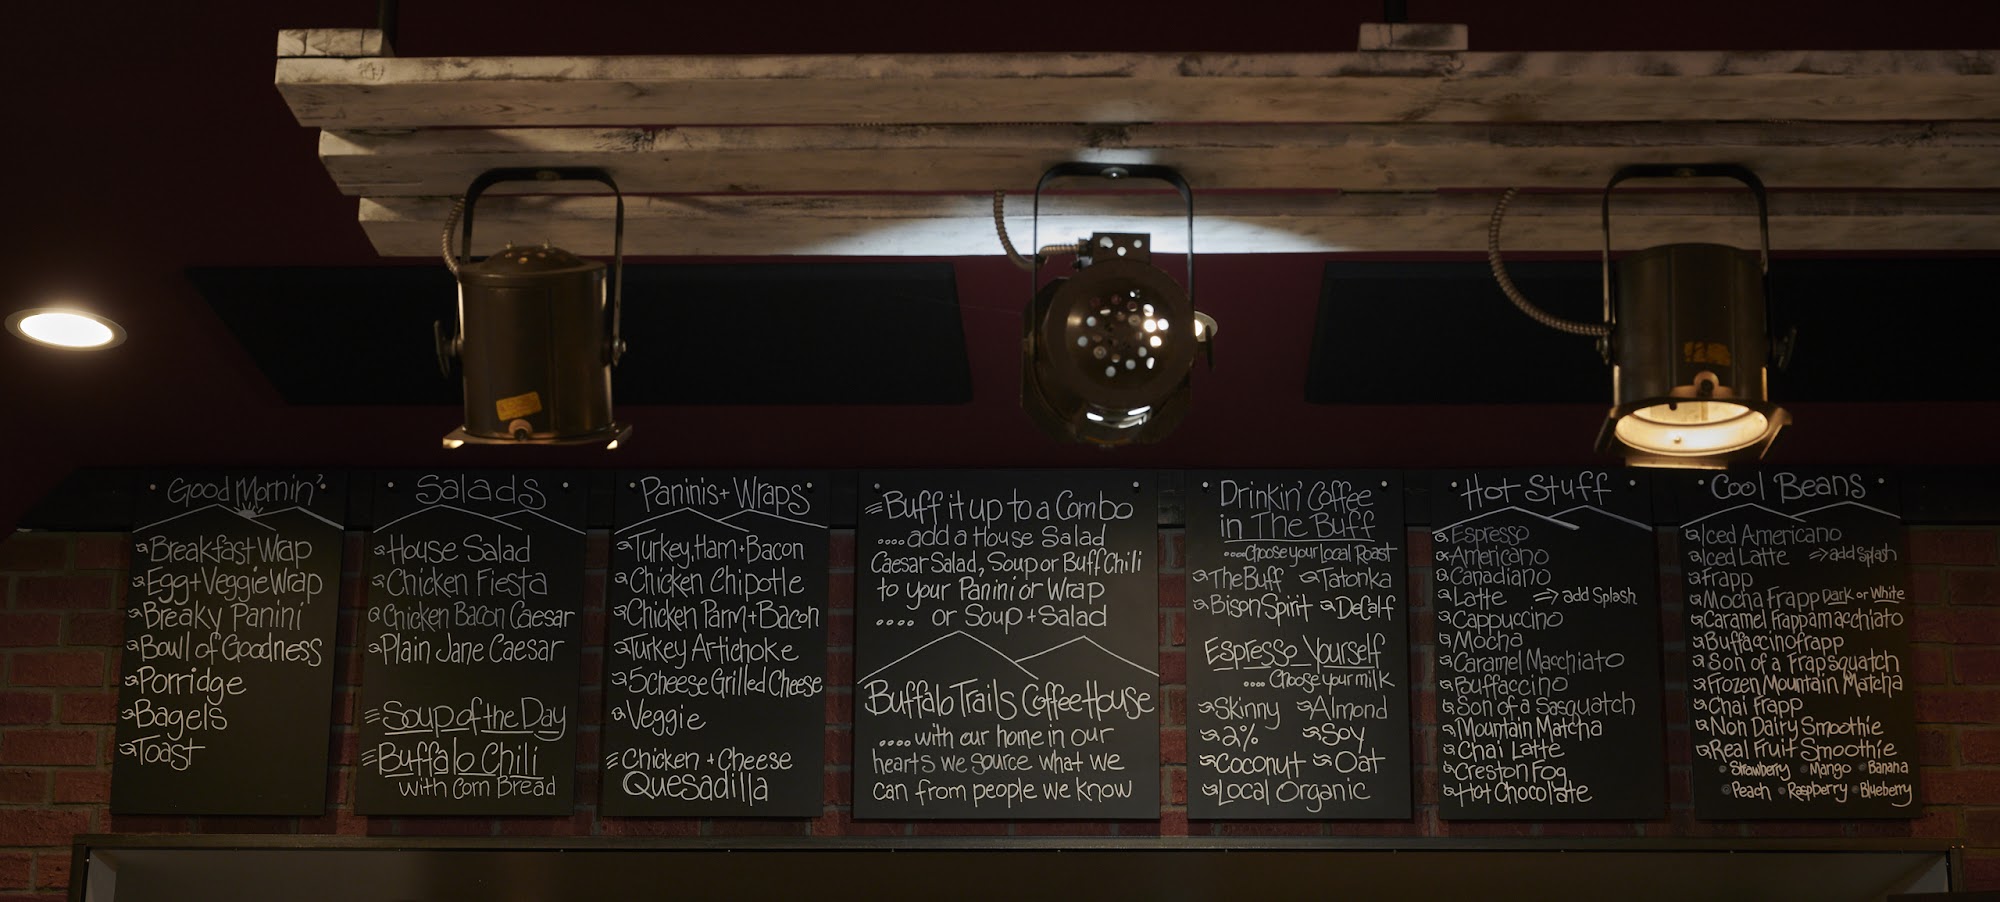 Good Mornin'
Breakfast Wrap
Egg + Veggie Wrap
Breaky Panini
Bowl of Goodness
Porridge
Bagels
Toast
Salads
House Salad
Chicken Fiesta
Chicken Bacon Caesar
Plain Jane Caesar
Soup of the Day
Buffalo Chili
with Corn Bread
Paninis + Wraps
Turkey, Ham + Bacon
Chicken Chipotle
Chicken Parm + Bacon
Turkey Artichoke
5 Cheese Grilled Cheese
Veggie
Chicken + Cheese
Quesadilla
Buff it up to a Combo
.... add a House Salad
Caesar Salad, Soup or Buff Chili
to your Panini or Wrap
.... or Soup + Salad
Buffalo Trails Coffee House
.... with our home in our
hearts we source what we
can from people we know
Drinkin' Coffee
in The Buff
.... choose your local Roast
The Buff Tatonka
Bison Spirit Decalf
Espresso Yourself
.... choose your milk
Skinny Almond
2% Soy
Coconut Oat
Local Organic
Hot Stuff
Espresso
Americano
Canadiano
Latte => add Splash
Cappuccino
Mocha
Caramel Macchiato
Buffaccino
Son of a Sasquatch
Mountain Matcha
Chai Latte
Creston Fog
Hot Chocolate
Cool Beans
Iced Americano
Iced Latte => add Splash
Frapp
Mocha Frapp Dark or White
Caramel Frappamacchiato
Buffaccinofrapp
Son of a Frapsquatch
Frozen Mountain Matcha
Chai Frapp
Non Dairy Smoothie
Real Fruit Smoothie
Strawberry Mango Banana
Peach Raspberry Blueberry